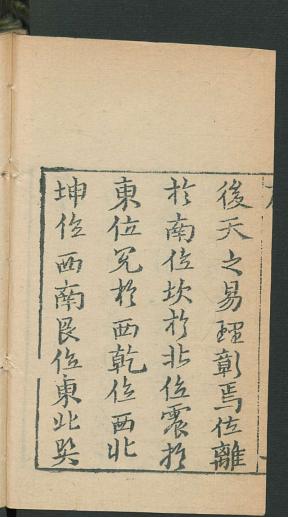 後天之易理彰焉位離
於南位坎於北位震於
東位兌於西乾位西北
坤位西南艮位東北巽